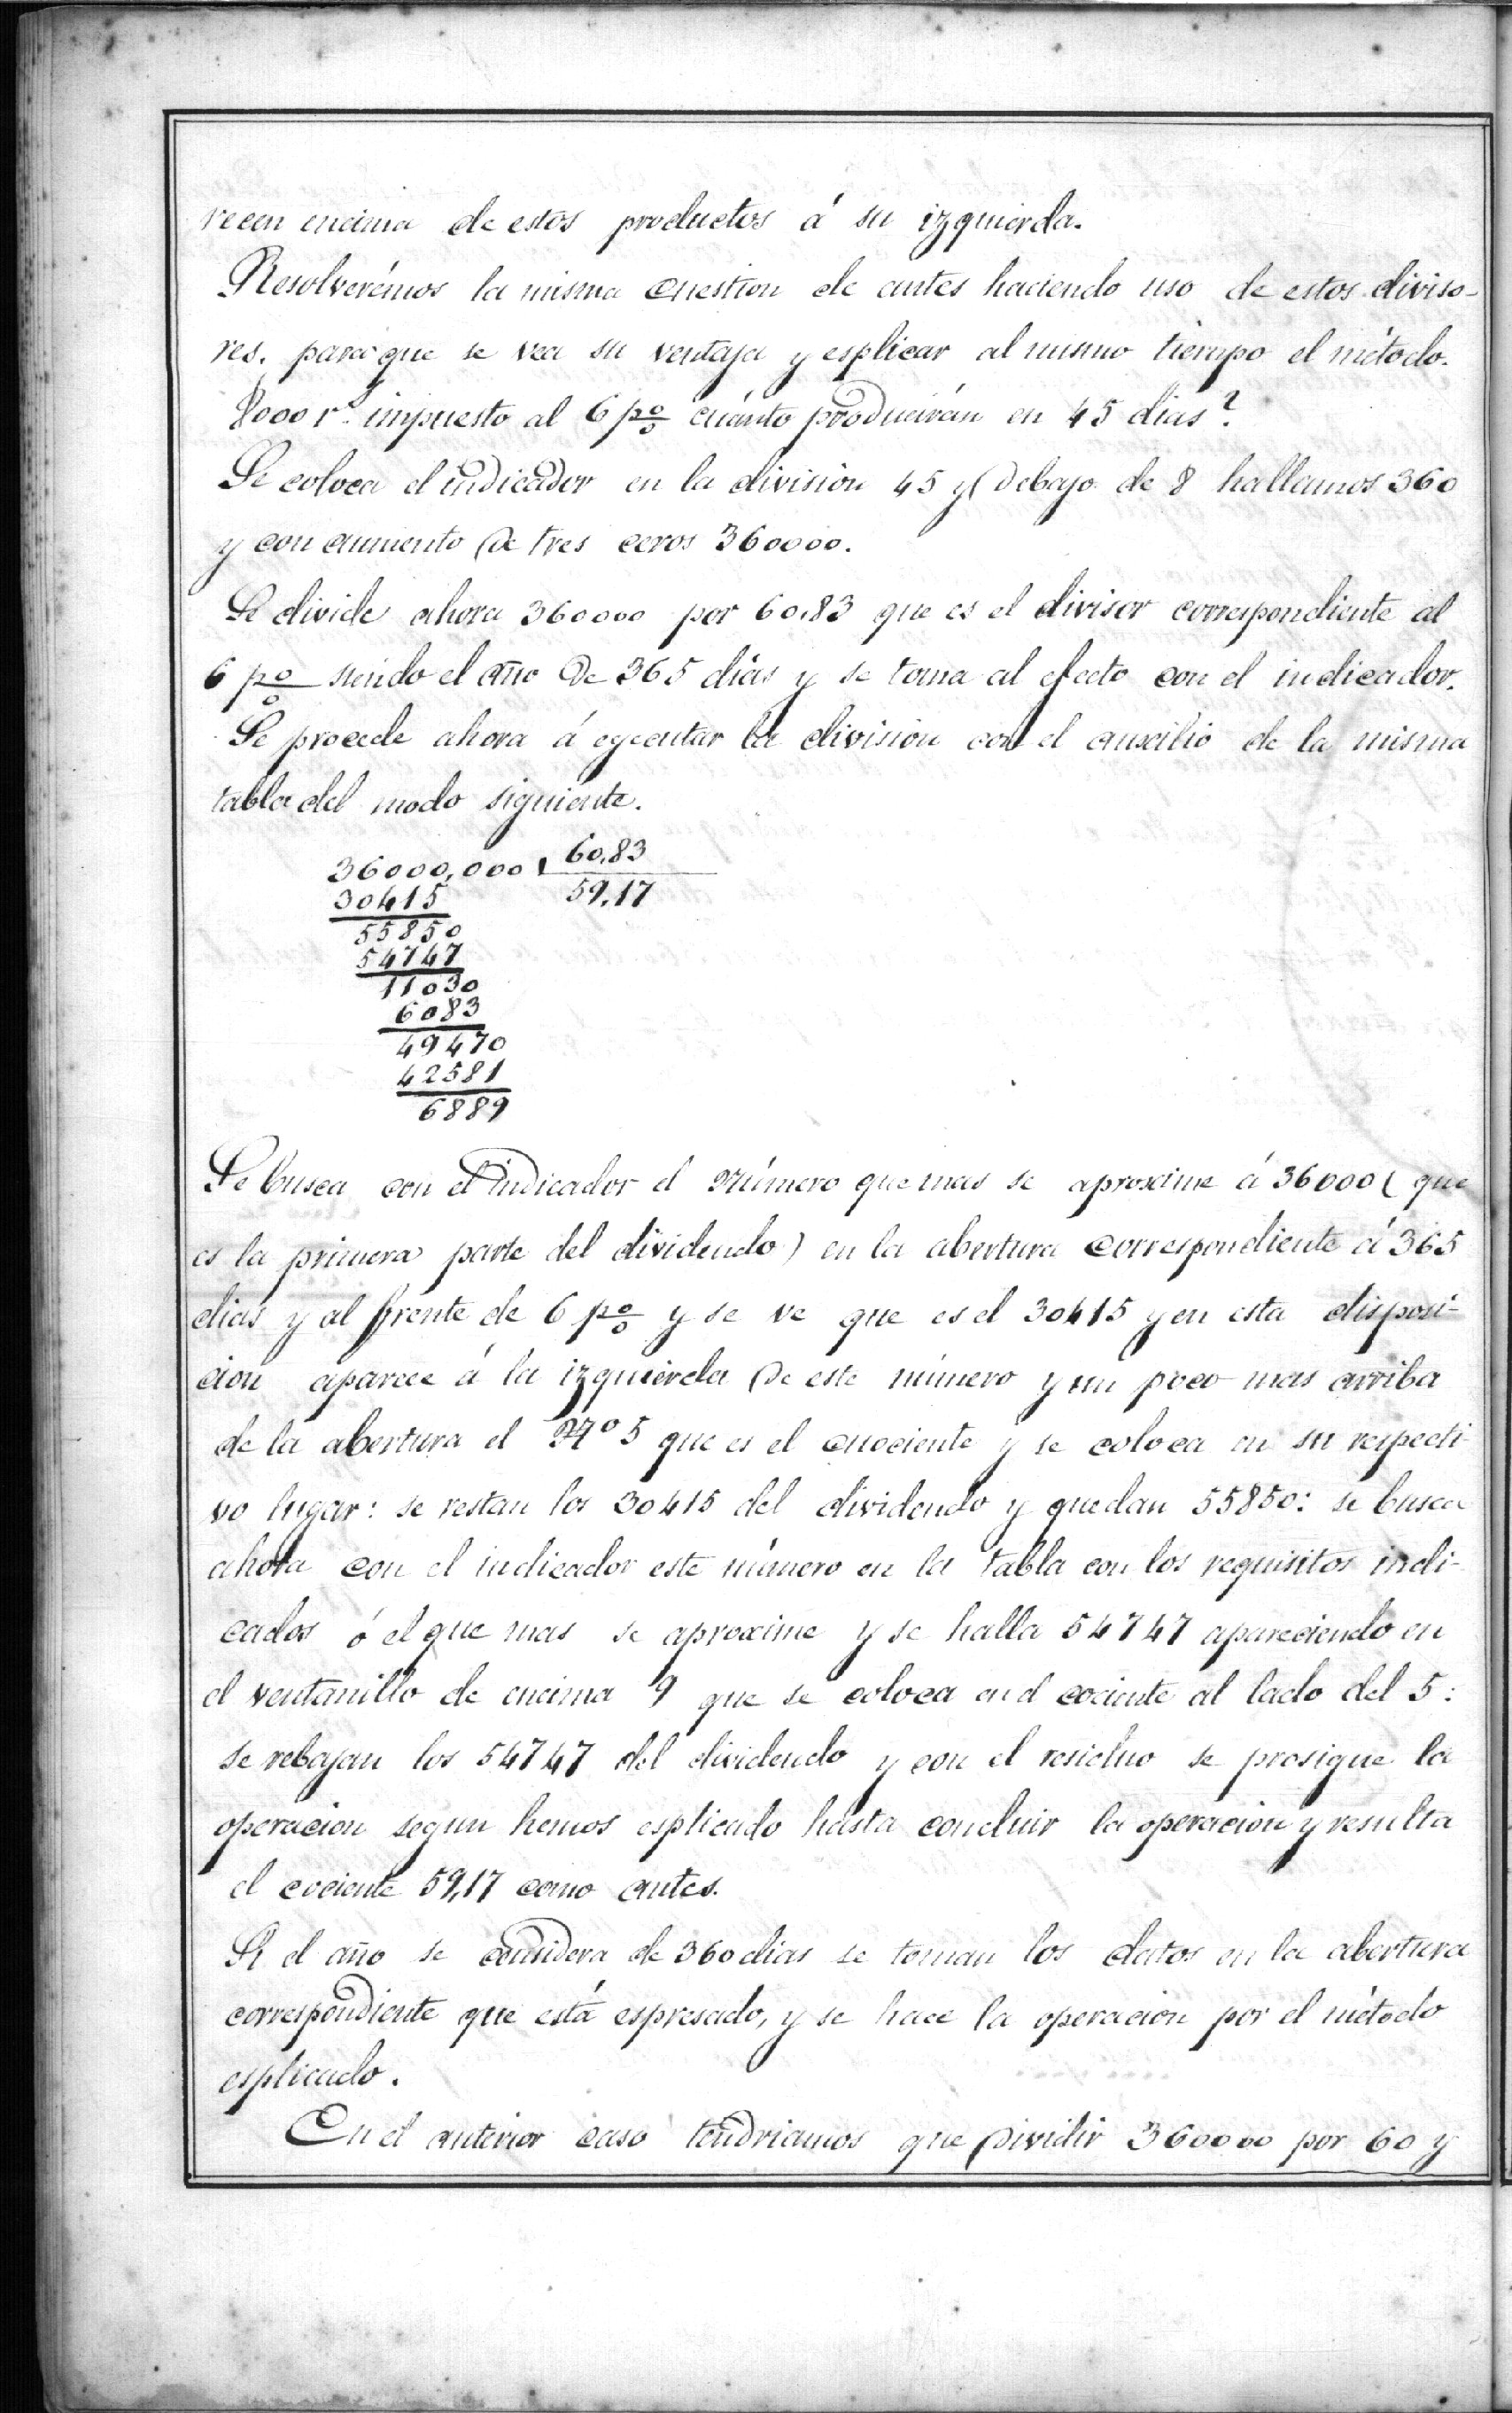 recen encima de estos productos á su izquierda.
Resolverémos la misma cuestion de antes haciendo uso de estos diviso-
res. para que se vea su ventaja y esplicar al mismo tiempo el método.
8000 rs impuesto al 6 p% cuánto producirán en 45 dias?
Se coloca el indicador en la division 45 y debajo de 8 hallamos 360
y con aumento de tres ceros 360000.
Se divide ahora 360000 por 60.83 que es el divisor correspondiente al
6 p% siendo el año de 365 dias y se toma al efecto con el indicador.
Se procede ahora á egecutar la division con el auxilio de la misma
tabla del modo siguiente.
36000,000 60,83
30415 59,17
55850
54747
11030
6083
49470
42581
6889
Se busca con el indicador el número que mas se aproxime á 36000 ( que
es la primera parte del dividendo) en la abertura correspondiente á 365
dias y al frente de 6 p% y se ve que es el 30415 y en esta disposi-
cion aparece á la izquierda de este número y un poco mas arriba
de la abertura el Nº 5 que es el cuociente y se coloca en su respecti-
vo lugar: se restan los 30415 del dividendo y quedan 55850: se busca
ahora con el indicador este número en la tabla con los requisitos indi-
cados ó el que mas se aproxime y se halla 54747 apareciendo en
el ventanillo de encima 9 que se coloca en el cociente al lado del 5:
se rebajan los 54747 del dividendo y con el residuo se prosigue la
operacion segun hemos esplicado hasta concluir la operacion y resulta
el cociente 59,17 como antes.
Si el año se considera de 360 dias se toman los datos en la abertura
correspondiente que está espresado, y se hace la operacion por el método
esplicado.
En el anterior caso tendriamos que dividir 360000 por 60 y